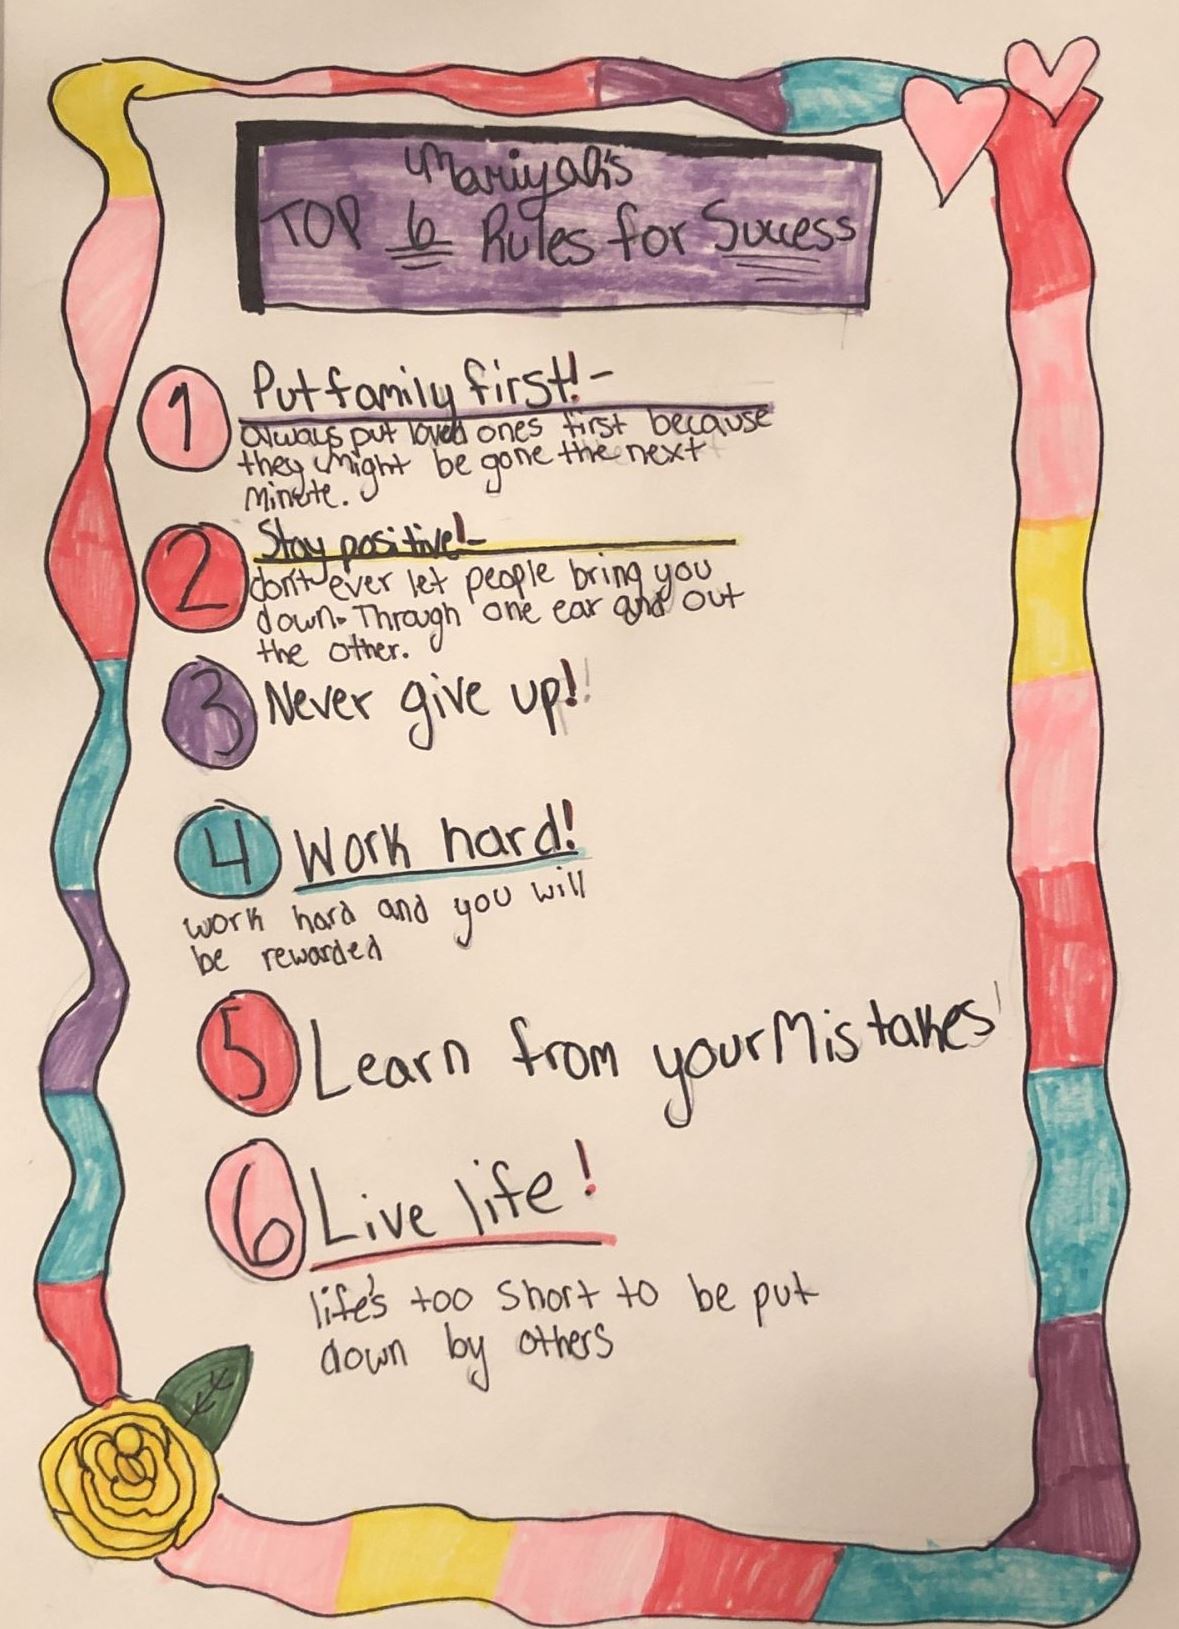 Mariyah's
TOP 6 Rules for Success
1 Put family first! -
always put loved ones first because
they might be gone the next
minute.
2 Stay positive! -
don't ever let people bring you
down. Through one ear and out
the other.
3 Never give up!!
4 Work hard!
work hard and you will
be rewarded
5 Learn from your Mistakes!
6 Live life!
life's too short to be put
down by others